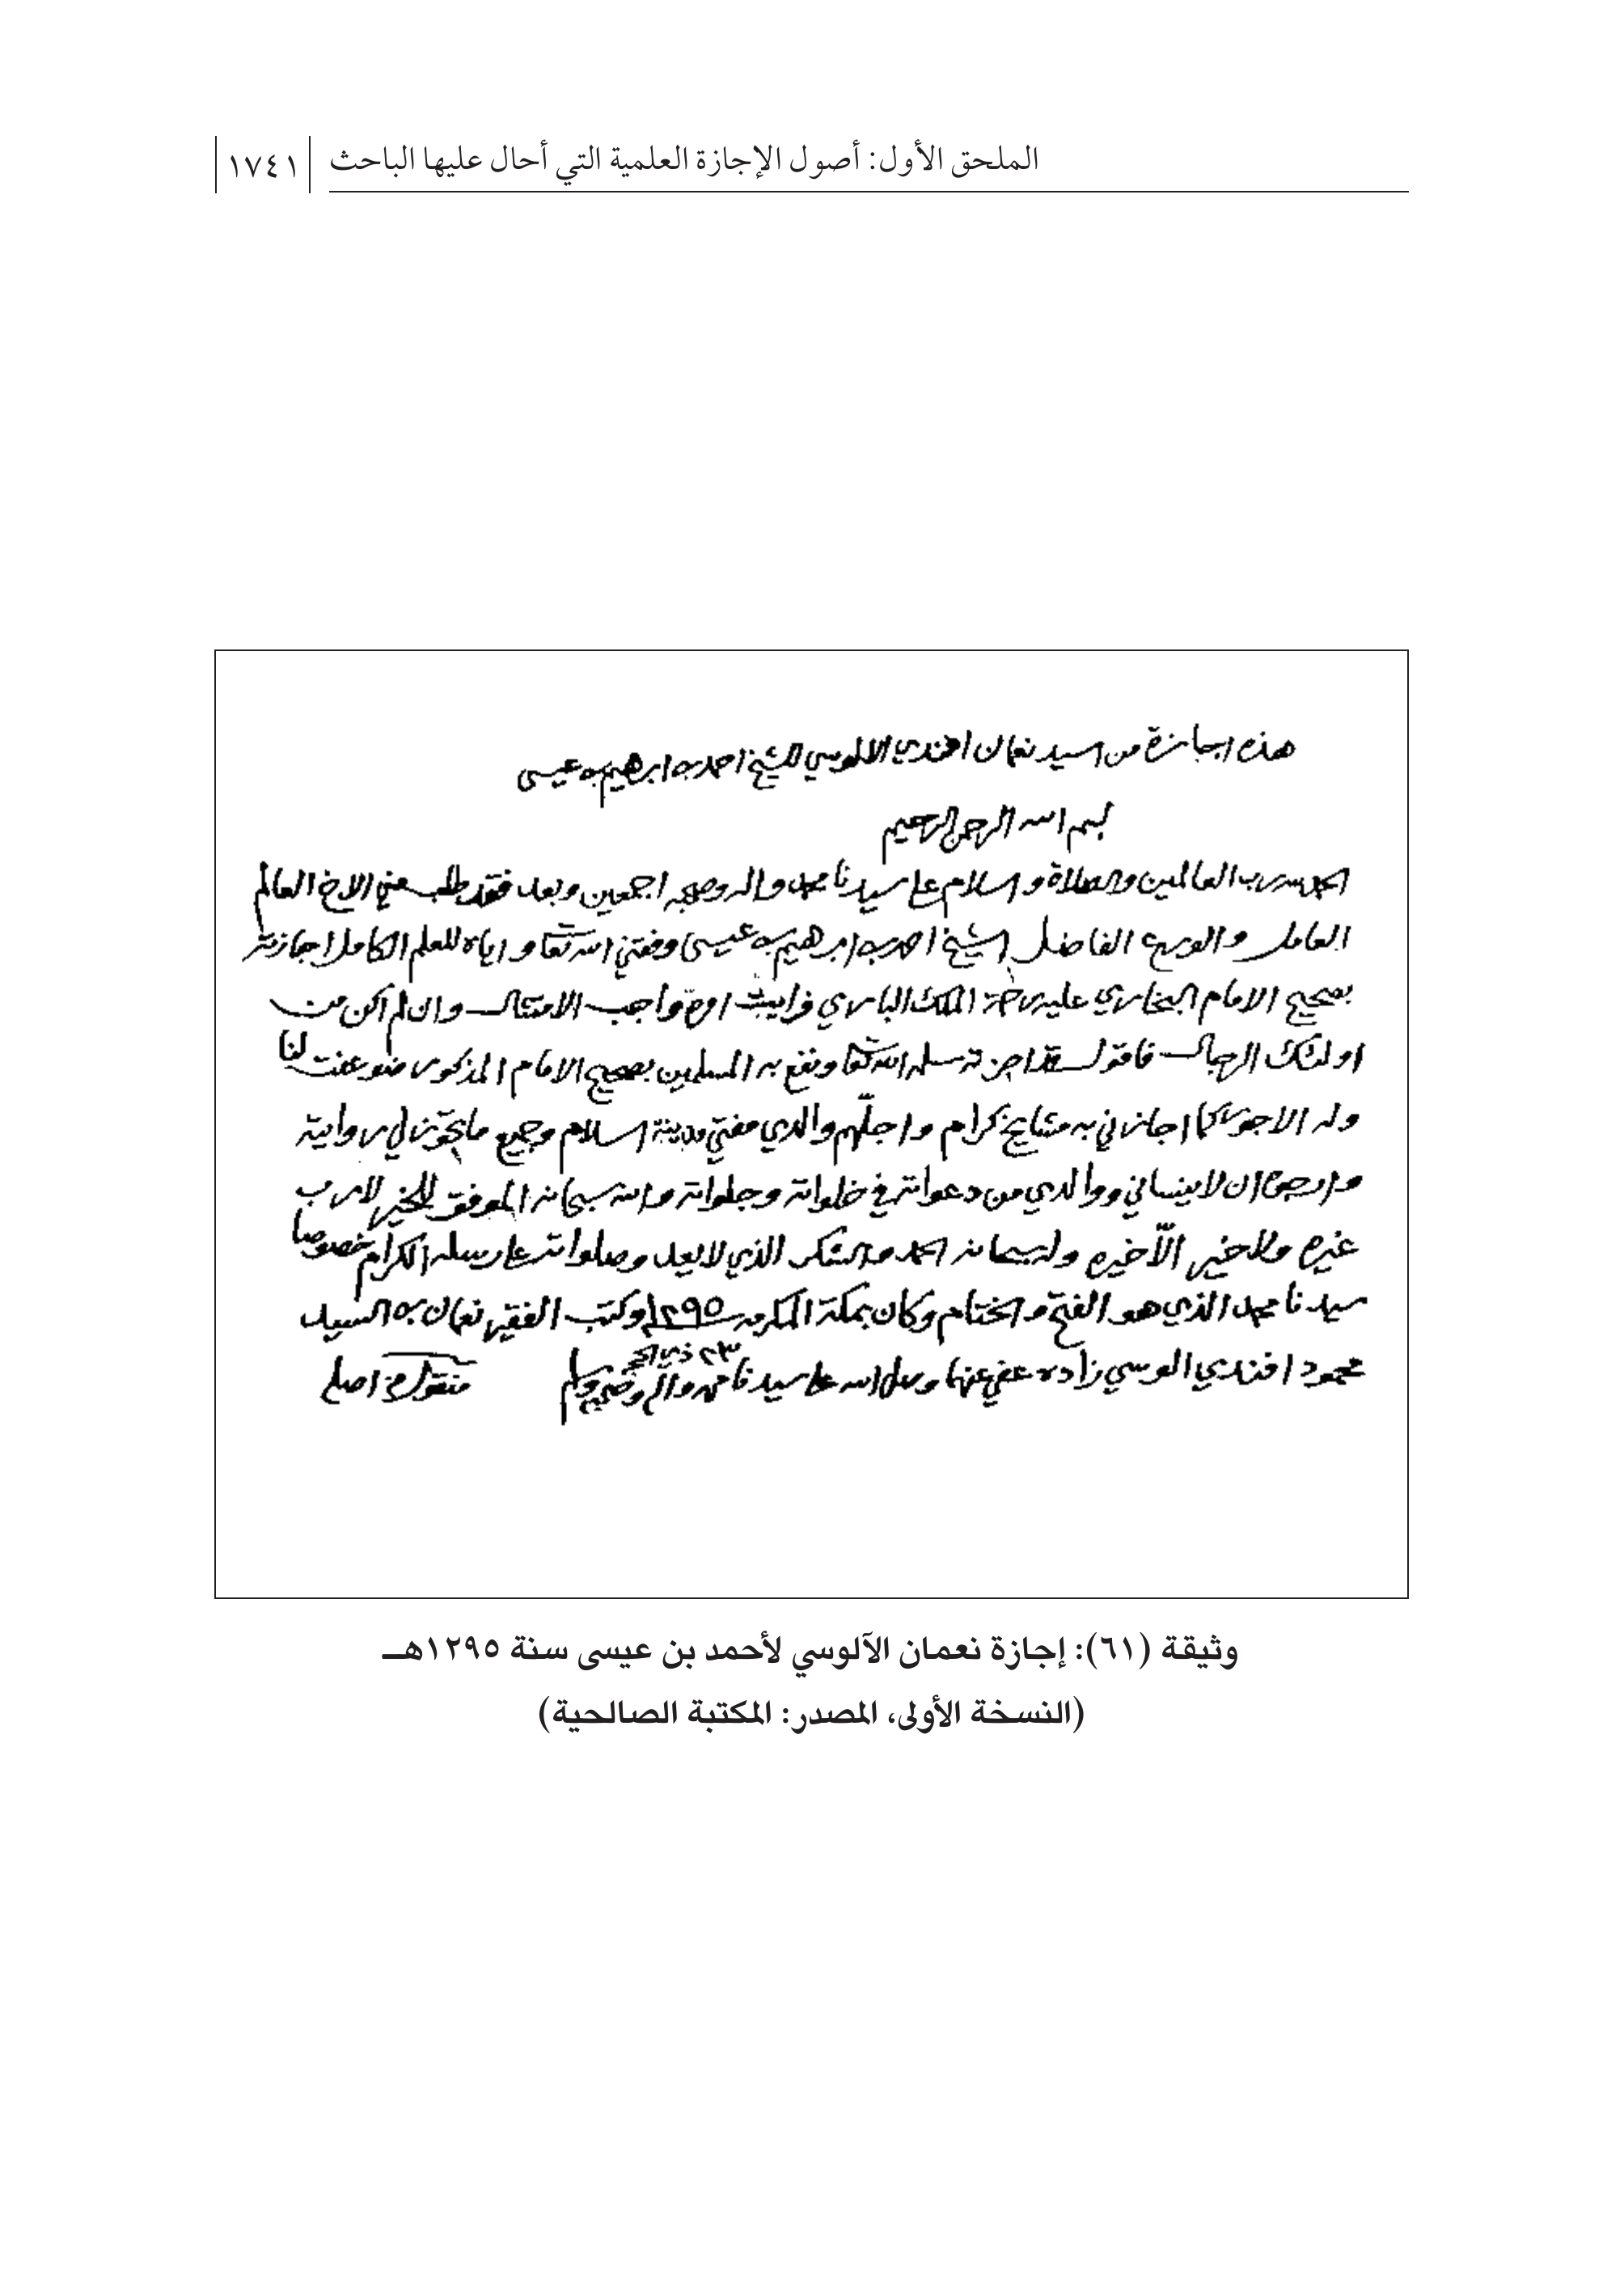 الملحق الأول: أصول الإجازة العلمية التي أحال عليها الباحث
١٧٤١
هذه اجازة من السيد نعمان افندي الالوسي للشيخ احمد بن ابرهيم بن عيسى
بسم الله الرحمن الرحيم
الحمد لله رب العالمين والصلاة والسلام على سيدنا محمد واله وصحبه اجمعين وبعد فقد طلب مني الاخ العالم
العامل والورع الفاضل الشيخ احمد بن ابرهيم بن عيسى وفقني الله تعا واياه للعلم الكامل اجازته
بصحيح الامام البخاري عليه رحمة الملك الباري فرايت امره واجب الامتثال وان لم اكن من
اولئك الرجال فاقول قد اجزته سلمه الله تعا ونفع به المسلمين بصحيح الامام المذكور ضوعفت لنا
وله الاجور كما اجازني به مشايخ كرام واجلّهم والدي مفتي مدينة السلام وجميع ما يجوز لي روايته
وارجو ان لا ينساني ووالدي من دعواته في خلواته وجلواته والله سبحانه الموفق للخير لا رب
غيره ولا خير الّا خيره وله سبحانه الحمد والشكر الذي لا يعد وصلواته على رسله الكرام خصوصا
سيدنا محمد الذي هو الفتح والختام وكان بمكة المكرمه ١٢٩٥ وكتب الفقير نعمان بن السيد
٢٣ ذي الحجه
محمود افندي الوسي زاده عفي عنهما وصلى الله على سيدنا محمد واله وصحبه وسلم منقول من اصله
وثيقة (٦١): إجازة نعمان الآلوسي لأحمد بن عيسى سنة ١٢٩٥هــ
(النسخة الأولى، المصدر: المكتبة الصالحية)